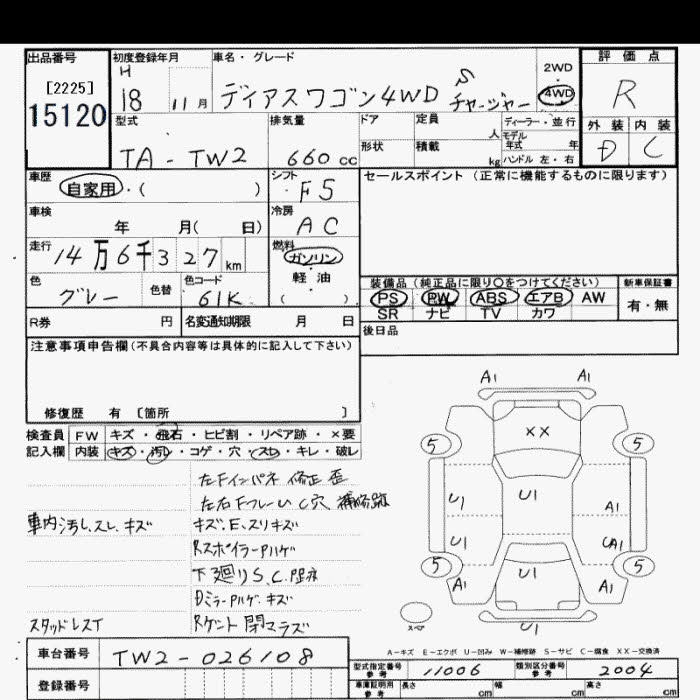 出品番号
[2225]
15120
初度登録年月
H
18 11月
車名・グレード
ディアスワゴン4WD S チャージャー
2WD
4WD
評価点
R
型式
TA-TW2
排気量
660cc
ドア
形状
定員
人
積載
kg
ディーラー・並行
モデル
年式 年
ハンドル 左・右
外装 内装
D C
車歴
自家用・( )
シフト
F5
車検
年 月( 日)
冷房
AC
走行
14万6千327km
燃料
ガソリン
軽油
( )
色
グレー
色替
色コード
61K
R券 円
名変通知期限 月 日
セールスポイント(正常に機能するものに限ります)
装備品(純正品に限り○をつけてください)
PS PW ABS エアB AW
SR ナビ TV カワ
新車保証書
有・無
後日品
注意事項申告欄(不具合内容等は具体的に記入して下さい)
修復歴 有 [箇所 ]
検査員
記入欄
FW キズ・飛石・ヒビ割・リペア跡・×要
内装 キズ・汚レ・コゲ・穴・スレ・キレ・破レ
左Fインパネ 修正 歪
左右Fフレーム C穴 補修跡
車内汚レ、スレ、キズ
キズ、E、スリキズ
Rスポイラー Pハゲ
下廻りS、C、
Dミラー Pハゲ・キズ
スタッドレス
Rゲント 閉マラズ
A1 A1
XX
5 5
U1 U1 A1
U1 UA1
5 5
A1 U1 A1
U1
スペア
A-キズ E-エクボ U-凹み W-補修跡 S-サビ C-腐食 XX-交換済
車台番号
TW2-026108
登録番号
型式指定番号
参考
11006
類別区分番号
参考
2004
車庫証明用
参考
長さ cm 幅 cm 高さ cm